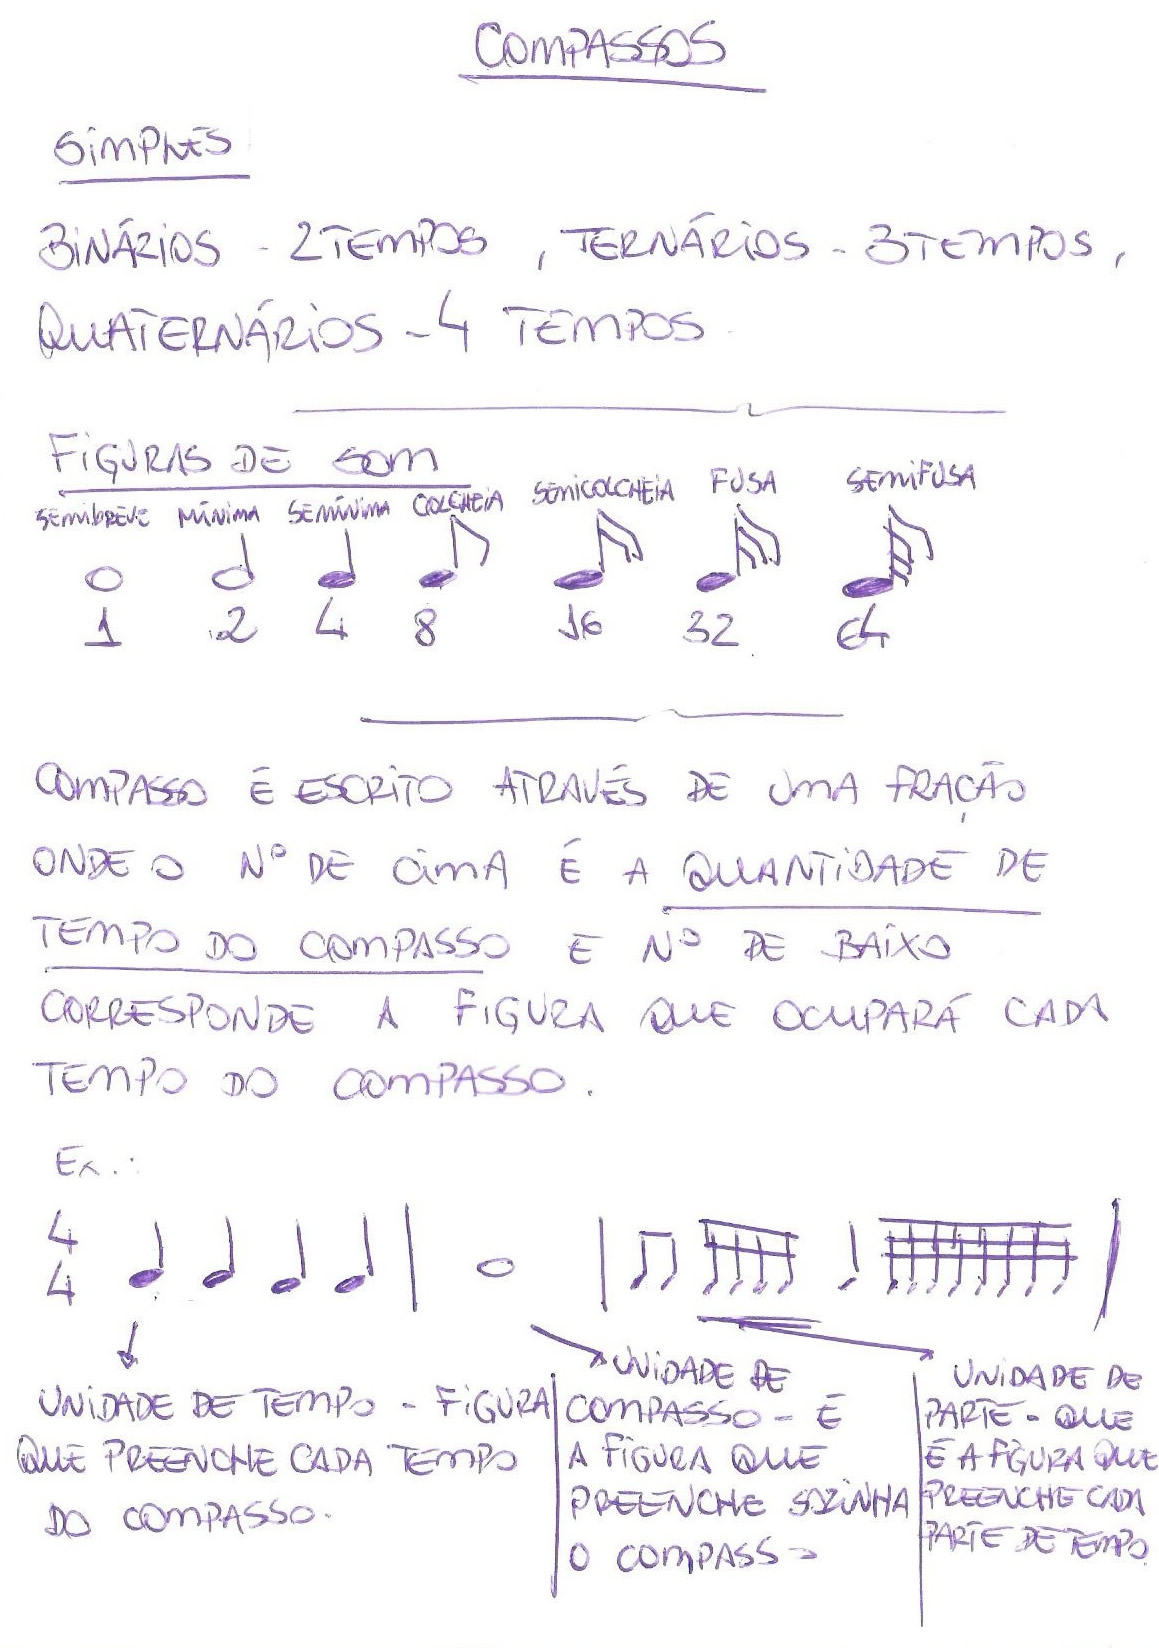 COMPASSOS
SIMPLES
BINÁRIOS - 2 TEMPOS , TERNÁRIOS - 3 TEMPOS,
QUATERNÁRIOS - 4 TEMPOS
FIGURAS DE SOM
SEMIBREVE MÍNIMA SEMÍNIMA COLCHEIA SEMICOLCHEIA FUSA SEMIFUSA
1 2 4 8 16 32 64
COMPASSO É ESCRITO ATRAVÉS DE UMA FRAÇÃO
ONDE O Nº DE CIMA É A QUANTIDADE DE
TEMPO DO COMPASSO E Nº DE BAIXO
CORRESPONDE A FIGURA QUE OCUPARÁ CADA
TEMPO DO COMPASSO.
Ex.:
4
4
UNIDADE DE TEMPO - FIGURA
QUE PREENCHE CADA TEMPO
DO COMPASSO.
UNIDADE DE
COMPASSO - É
A FIGURA QUE
PREENCHE SOZINHA
O COMPASSO
UNIDADE DE
PARTE - QUE
É A FIGURA QUE
PREENCHE CADA
PARTE DE TEMPO